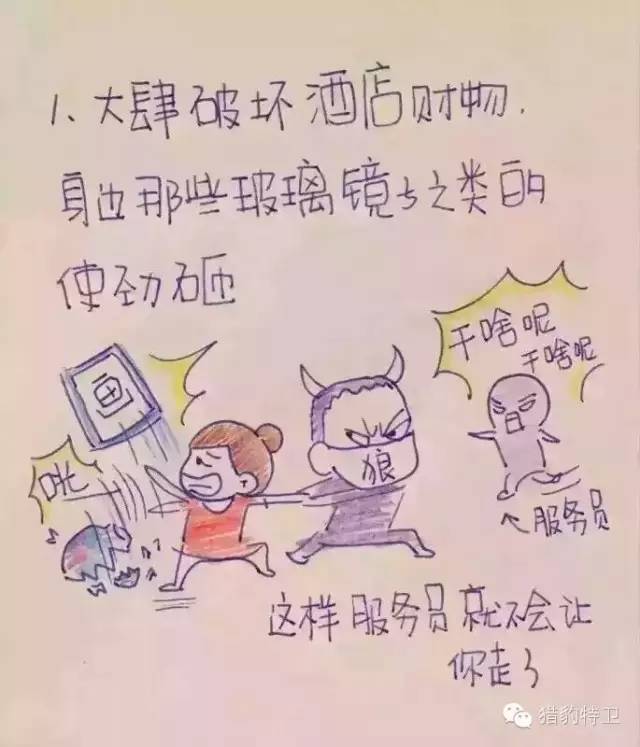 1、大肆破坏酒店财物.
身边那些玻璃镜子之类的
使劲砸
干啥呢
干啥呢
画
咣
狼
←服务员
这样服务员就不会让
你走了
猎豹特卫